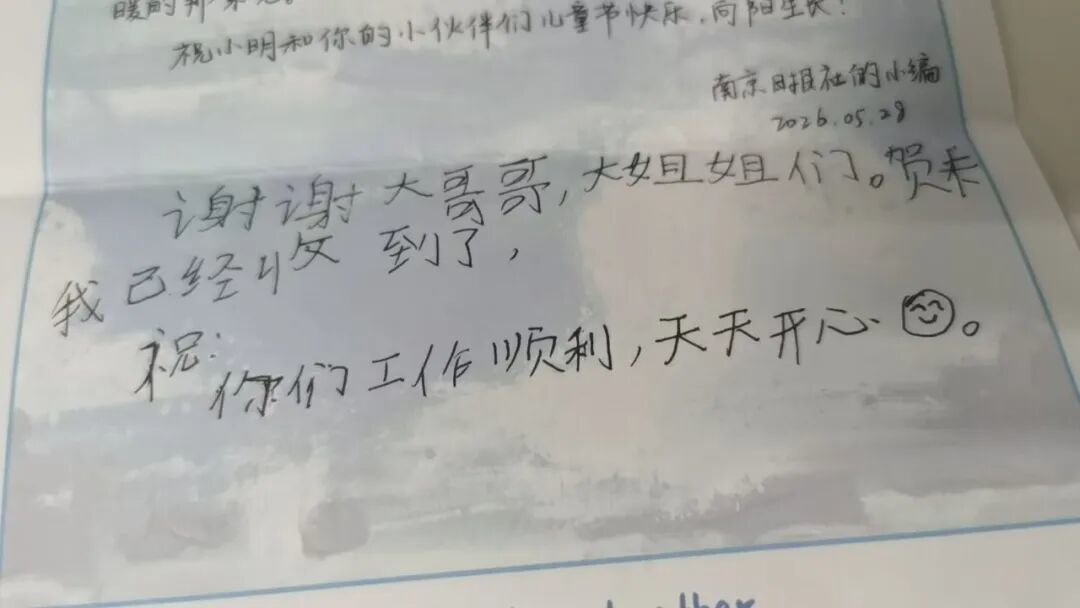 暖的
祝小明和你的小伙伴们儿童节快乐，向阳生长！
南京日报社的小编
2026.05.28
谢谢大哥哥，大姐姐们。贺卡
我已经收到了，
祝：
你们工作顺利，天天开心。